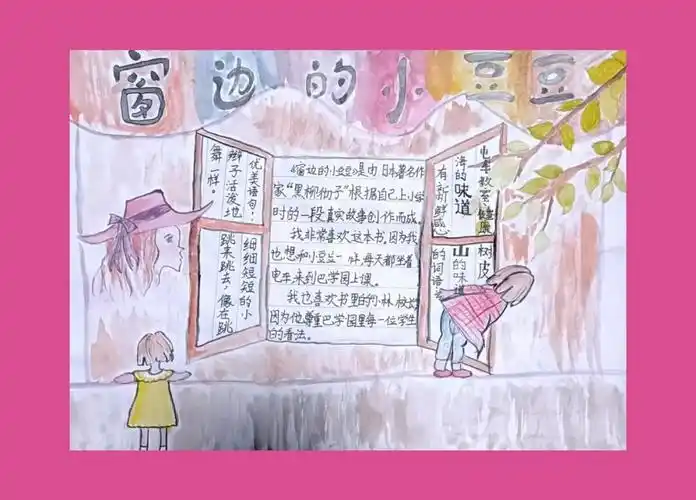 窗边的小豆豆
优美语句:
细细短短的小
辫子活泼地
跳来跳去,像在跳
舞一样。
《窗边的小豆豆》是由日本著名作
家“黑柳彻子”根据自己上小学
时的一段真实故事创作而成。
我非常喜欢这本书,因为我
也想和小豆豆一样,每天都坐着
电车来到巴学园上课。
我也喜欢书里的小林校长,
因为他尊重巴学园里每一位学生
的看法。
有新鲜感
的词语
海的味道
山的味道
电车教室 健康树皮